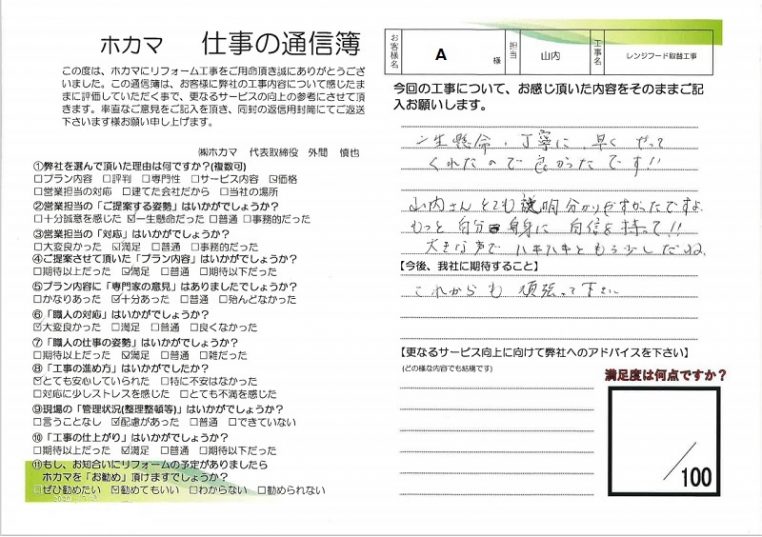 ホカマ 仕事の通信簿
この度は、ホカマにリフォーム工事をご用命頂き誠にありがとうござ
いました。この通信簿は、お客様に弊社の工事内容について感じたま
まに評価していただく事で、更なるサービスの向上の参考にさせて頂
きます。率直なご意見をご記入を頂き、同封の返信用封筒にてご返送
下さいます様お願い申し上げます。
㈱ホカマ 代表取締役 外間 慎也
①弊社を選んで頂いた理由は何ですか?(複数可)
□プラン内容 □評判 □専門性 □サービス内容 ☑価格
□営業担当の対応 □建てた会社だから □当社の場所
②営業担当の「ご提案する姿勢」はいかがでしょうか?
□十分誠意を感じた ☑一生懸命だった □普通 □事務的だった
③営業担当の「対応」はいかがでしょうか?
□大変良かった ☑満足 □普通 □事務的だった
④ご提案させて頂いた「プラン内容」はいかがでしょうか?
□期待以上だった ☑満足 □普通 □期待以下だった
⑤プラン内容に「専門家の意見」はありましたでしょうか?
□かなりあった ☑十分あった □普通 □殆んどなかった
⑥「職人の対応」はいかがでしょうか?
☑大変良かった □満足 □普通 □良くなかった
⑦「職人の仕事の姿勢」はいかがでしょうか?
□期待以上だった ☑満足 □普通 □雑だった
⑧「工事の進め方」はいかがでしたか?
☑とても安心していられた □特に不安はなかった
□対応に少しストレスを感じた □とても不満を感じた
⑨現場の「管理状況(整理整頓等)」はいかがでしょうか?
□言うことなし ☑配慮があった □普通 □できていない
⑩「工事の仕上がり」はいかがでしょうか?
□期待以上だった ☑満足 □普通 □期待以下だった
⑪もし、お知合いにリフォームの予定がありましたら
ホカマを「お勧め」頂けますでしょうか?
□ぜひ勧めたい ☑勧めてもいい □わからない □勧められない
お客様名 A 様 担当 山内 工事名 レンジフード取替工事
今回の工事について、お感じ頂いた内容をそのままご記
入お願いします。
一生懸命、丁寧に、早くやって
くれたので良かったです!!
山内さんとても説明分かりやすかったですよ
もっと自分自身に自信を持って!!
大きな声でハキハキともう少しだね
【今後、我社に期待すること】
これからも頑張って下さい
【更なるサービス向上に向けて弊社へのアドバイスを下さい】
(どの様な内容でも結構です)
満足度は何点ですか?
/100